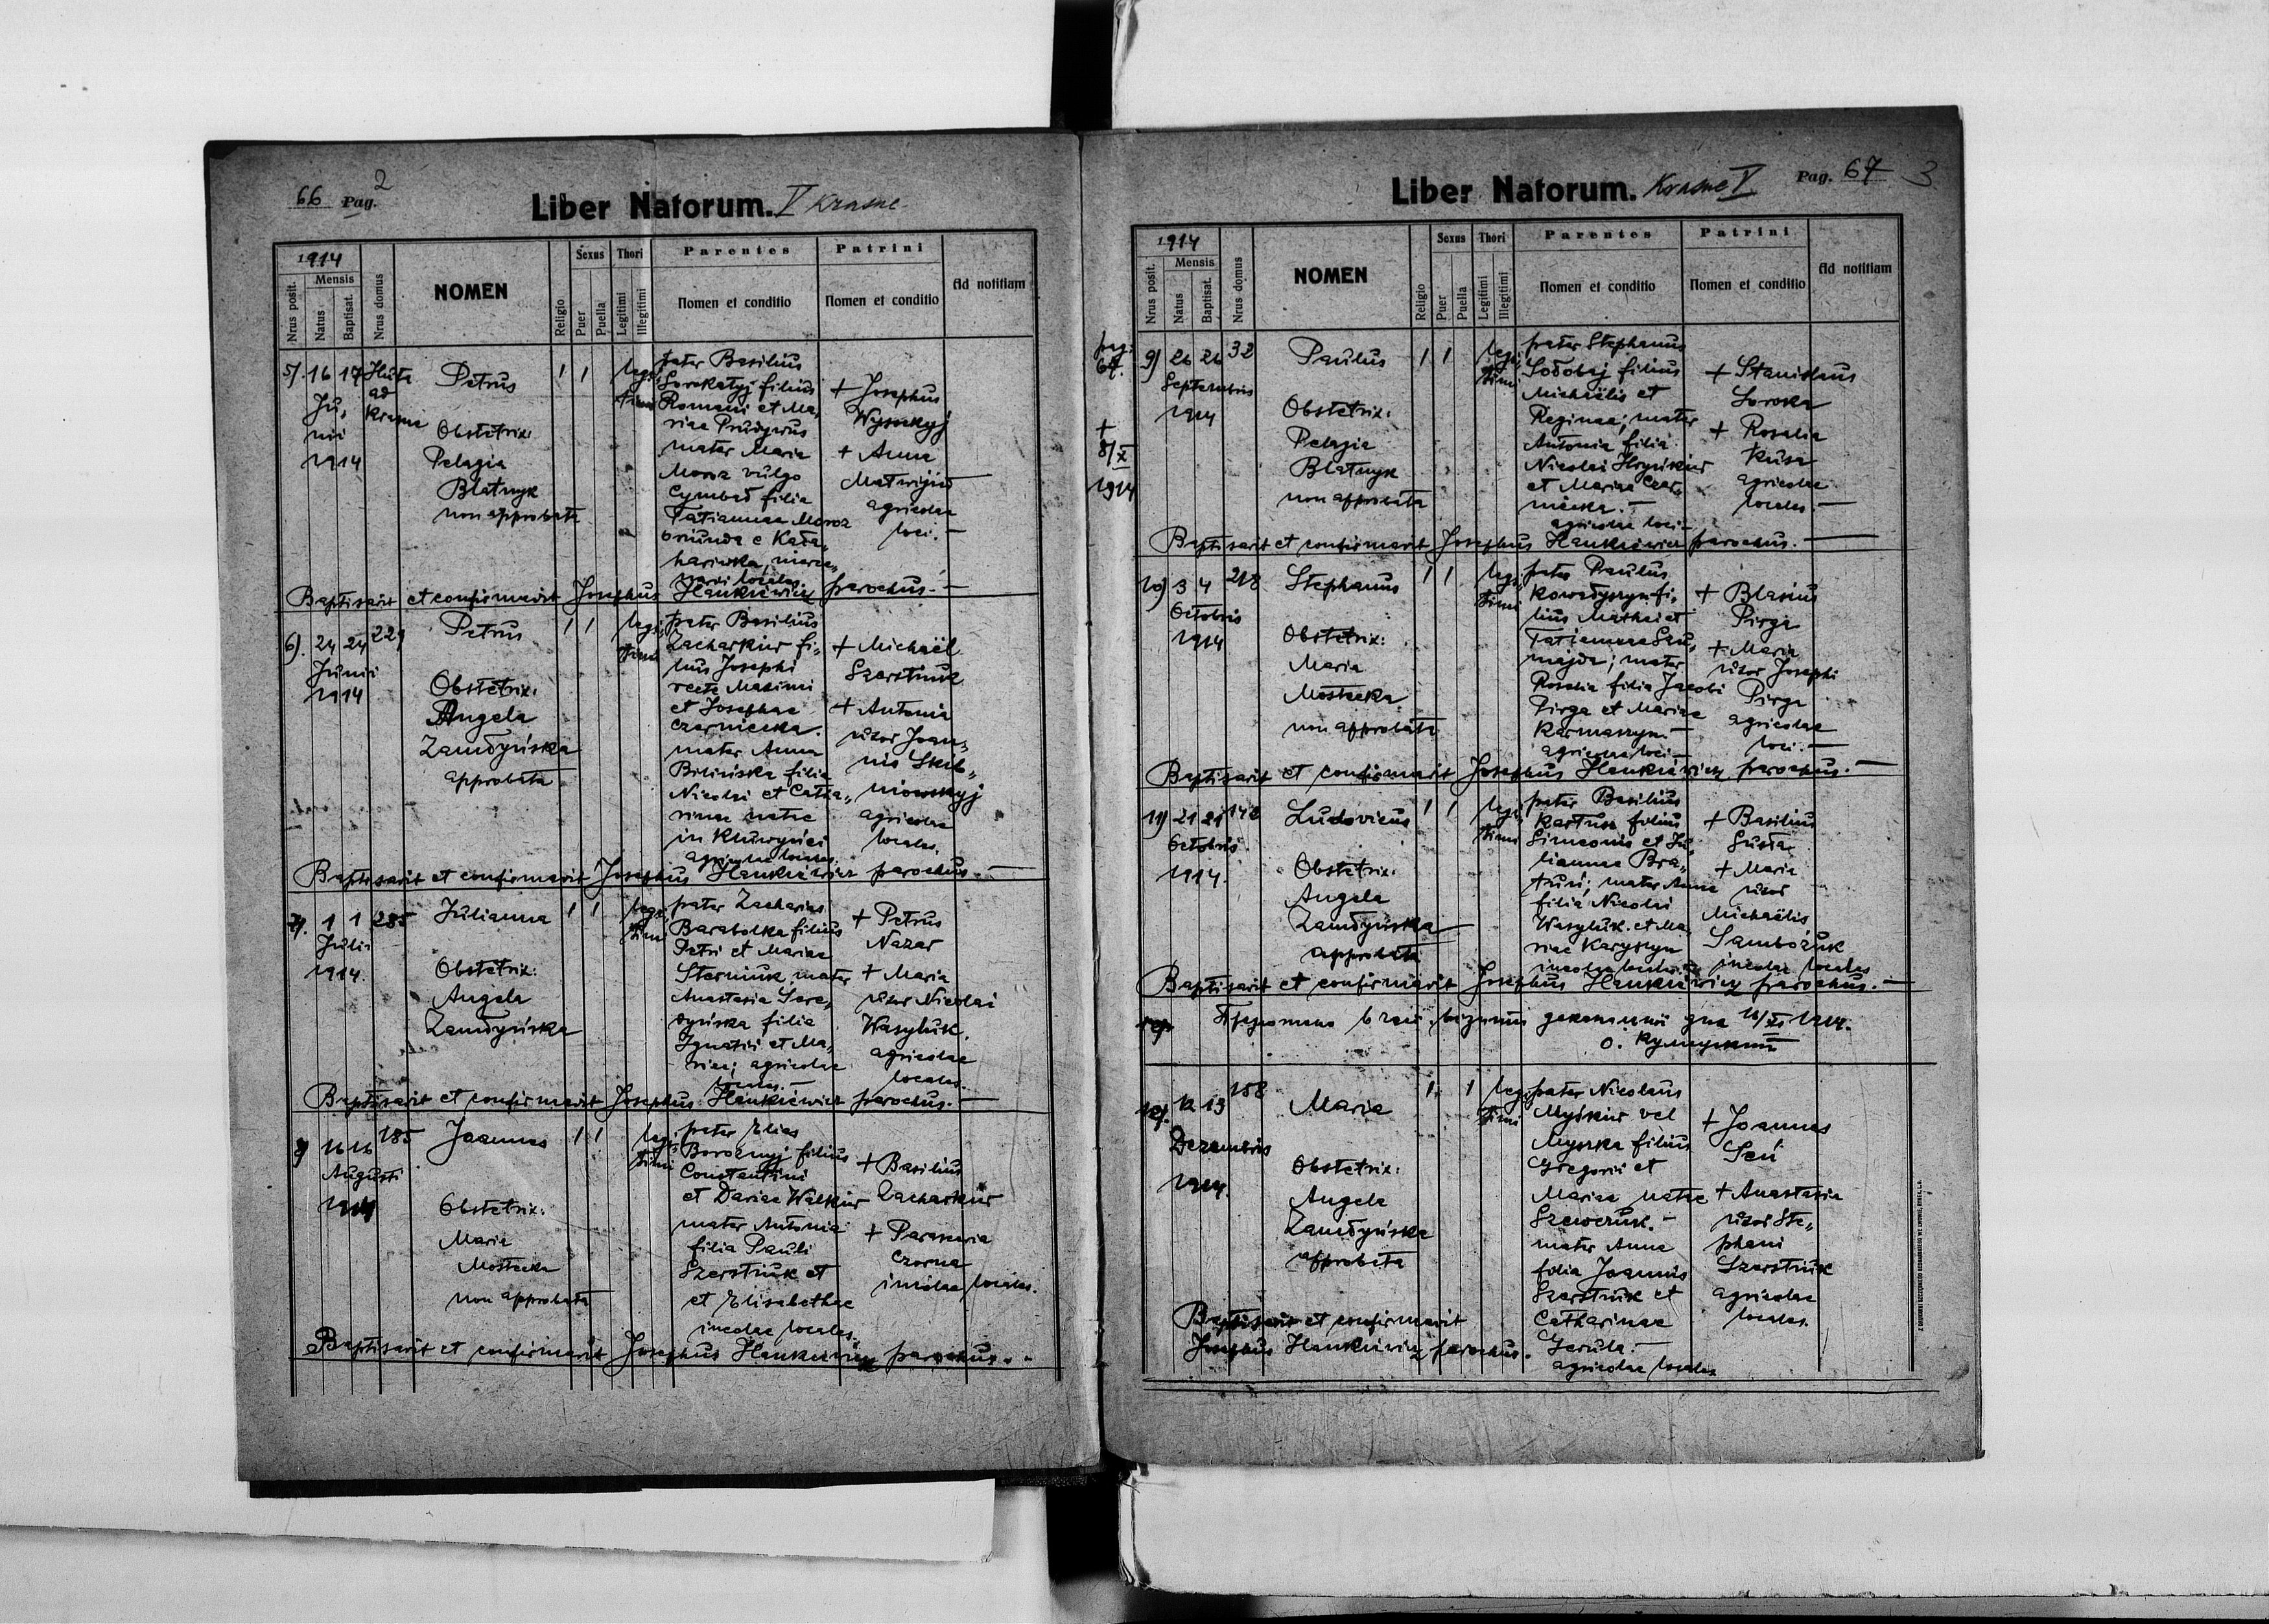 66 Pag. 2
Liber Natorum. V Krasne
1914
Nrus posit.
Mensis
Natus
Baptisat.
Nrus domus
NOMEN
Religio
Sexus
Puer
Puella
Thori
Legitimi
Illegitimi
Parentes
Nomen et conditio
Patrini
Nomen et conditio
Ad notitiam
5). 16 17
Junii
1914
Huta
ad
Krasne
Petrus
Obstetrix:
Pelagia
Blatnyk
non approbata
1 1
legi
timi
pater Basilius
Sorokatyj filius
Romani et Ma„
riae
mater Maria
Moroz vulgo
Cymbał filia
Tatiannae Moroz
oriunda e
locales.
+ Josephus
Wysockyj
+ Anna
agricolae
loci. —
Baptisavit et confirmavit Josephus Hankiewicz parochus. —
6). 24 24 229
Junii
1914
Petrus
Obstetrix:
Angela
Zamdyńska
approbata
1 1
legi
timi
pater Basilius
Zacharkiw fi„
lius Josephi
recte Maximi
et Josephae
Czarniecka.
mater Anna
Bilińska filia
Nicolai et Catha„
rinae natae
in
agricolae locales.
+ Michaël
Szerstiuk
+ Antonia
uxor Joan„
nis Skib„
niowskyj
agricolae
locales.
Baptisavit et confirmavit Josephus Hankiewicz parochus. —
7). 1 1 285
Julii
1914.
Julianna
Obstetrix:
Angela
Zamdyńska
1 1
legi
timi
pater Zacharias
Barabolka filius
Petri et Mariae
Sterniuk, mater
Anastasia Sere„
dyńska filia
Ignatii et Ma„
riae; agricolae
locales. —
+ Petrus
Nazar
+ Maria
uxor Nicolai
Wasyluk.
agricolae
locales.
Baptisavit et confirmavit Josephus Hankiewicz parochus. —
8) 16 16 185
Augusti
1914
Joannes
Obstetrix:
Maria
Mostecka
non approbata
1 1
legi
timi
pater Elias
Boroznyj filius
Constantini
et Dariae Walkiw
mater Antonia
filia Pauli
Szerstiuk et
et Elisabethae
incolae locales.
+ Basilius
Zacharkiw
+ Parascevia
Czorna
incolae locales.
Baptisavit et confirmavit Josephus Hankiewicz parochus. -
Liber Natorum. Krasne V
Pag. 67 3
1914
Nrus posit.
Mensis
Natus
Baptisat.
Nrus domus
NOMEN
Religio
Sexus
Puer
Puella
Thori
Legitimi
Illegitimi
Parentes
Nomen et conditio
Patrini
Nomen et conditio
Ad notitiam
pag.
67.
+
8/X
1914
9) 26 26 32
Septembris
1914
Paulus
Obstetrix:
Pelagia
Blatnyk
non approbata
1 1
legi
timi
pater Stephanus
Sołobaj filius
Michaëlis et
Reginae; mater
Antonia filia
Nicolai Hryńkiw
et Mariae Czar„
niecka. —
agricolae loci —
+ Stanislaus
Soroka
+ Rosalia
Kusa
agricolae
locales. —
Baptisavit et confirmavit Josephus Hankiewicz parochus. —
10) 3 4 218
Octobris
1914
Stephanus
Obstetrix:
Maria
Mostecka
non approbata
1 1
legi
timi
pater Paulus
Kowedyszyn fi„
lius Mathei et
Tatiannae
mater
Rosalia filia Jacobi
Pirga et Mariae
Karmaszyn —
agricolae loci —
+ Blasius
Pirga
+ Maria
uxor Josephi
Pirga
agricolae
loci. —
Baptisavit et confirmavit Josephus Hankiewicz parochus. —
11) 21 21 148
Octobris
1914.
Ludovicus
Obstetrix:
Angela
Zamdyńska
approbata
1 1
legi
timi
pater Basilius
filius
Simeonis et Ju„
liannae Bra„
tuń; mater Anna
filia Nicolai
Wasyluk et Ma„
riae Karyszyn
+ Basilius
Gusta
+ Maria
uxor
Michaëlis
Samborzuk
incolae locales
Baptisavit et confirmavit Josephus Hankiewicz parochus. —
Переглянено в часі візитації деканальної дня 1914.
о.
12). 12 13 158
Decembris
1914.
Maria
Obstetrix:
Angela
Zamdyńska
approbata
1 1
legi
timi
pater Nicolaus
Myśkiw vel
Myszka filius
Gregorii et
Mariae natae
Szewczuk. —
mater Anna
filia Joannis
Szerstiuk et
Catharinae
Gerula. —
agricolae locales
+ Joannes
Seń
+ Anastasia
uxor Ste„
phani
Szerstiuk
agricolae
locales.
Baptisavit et confirmavit
Josephus Hankiewicz parochus.